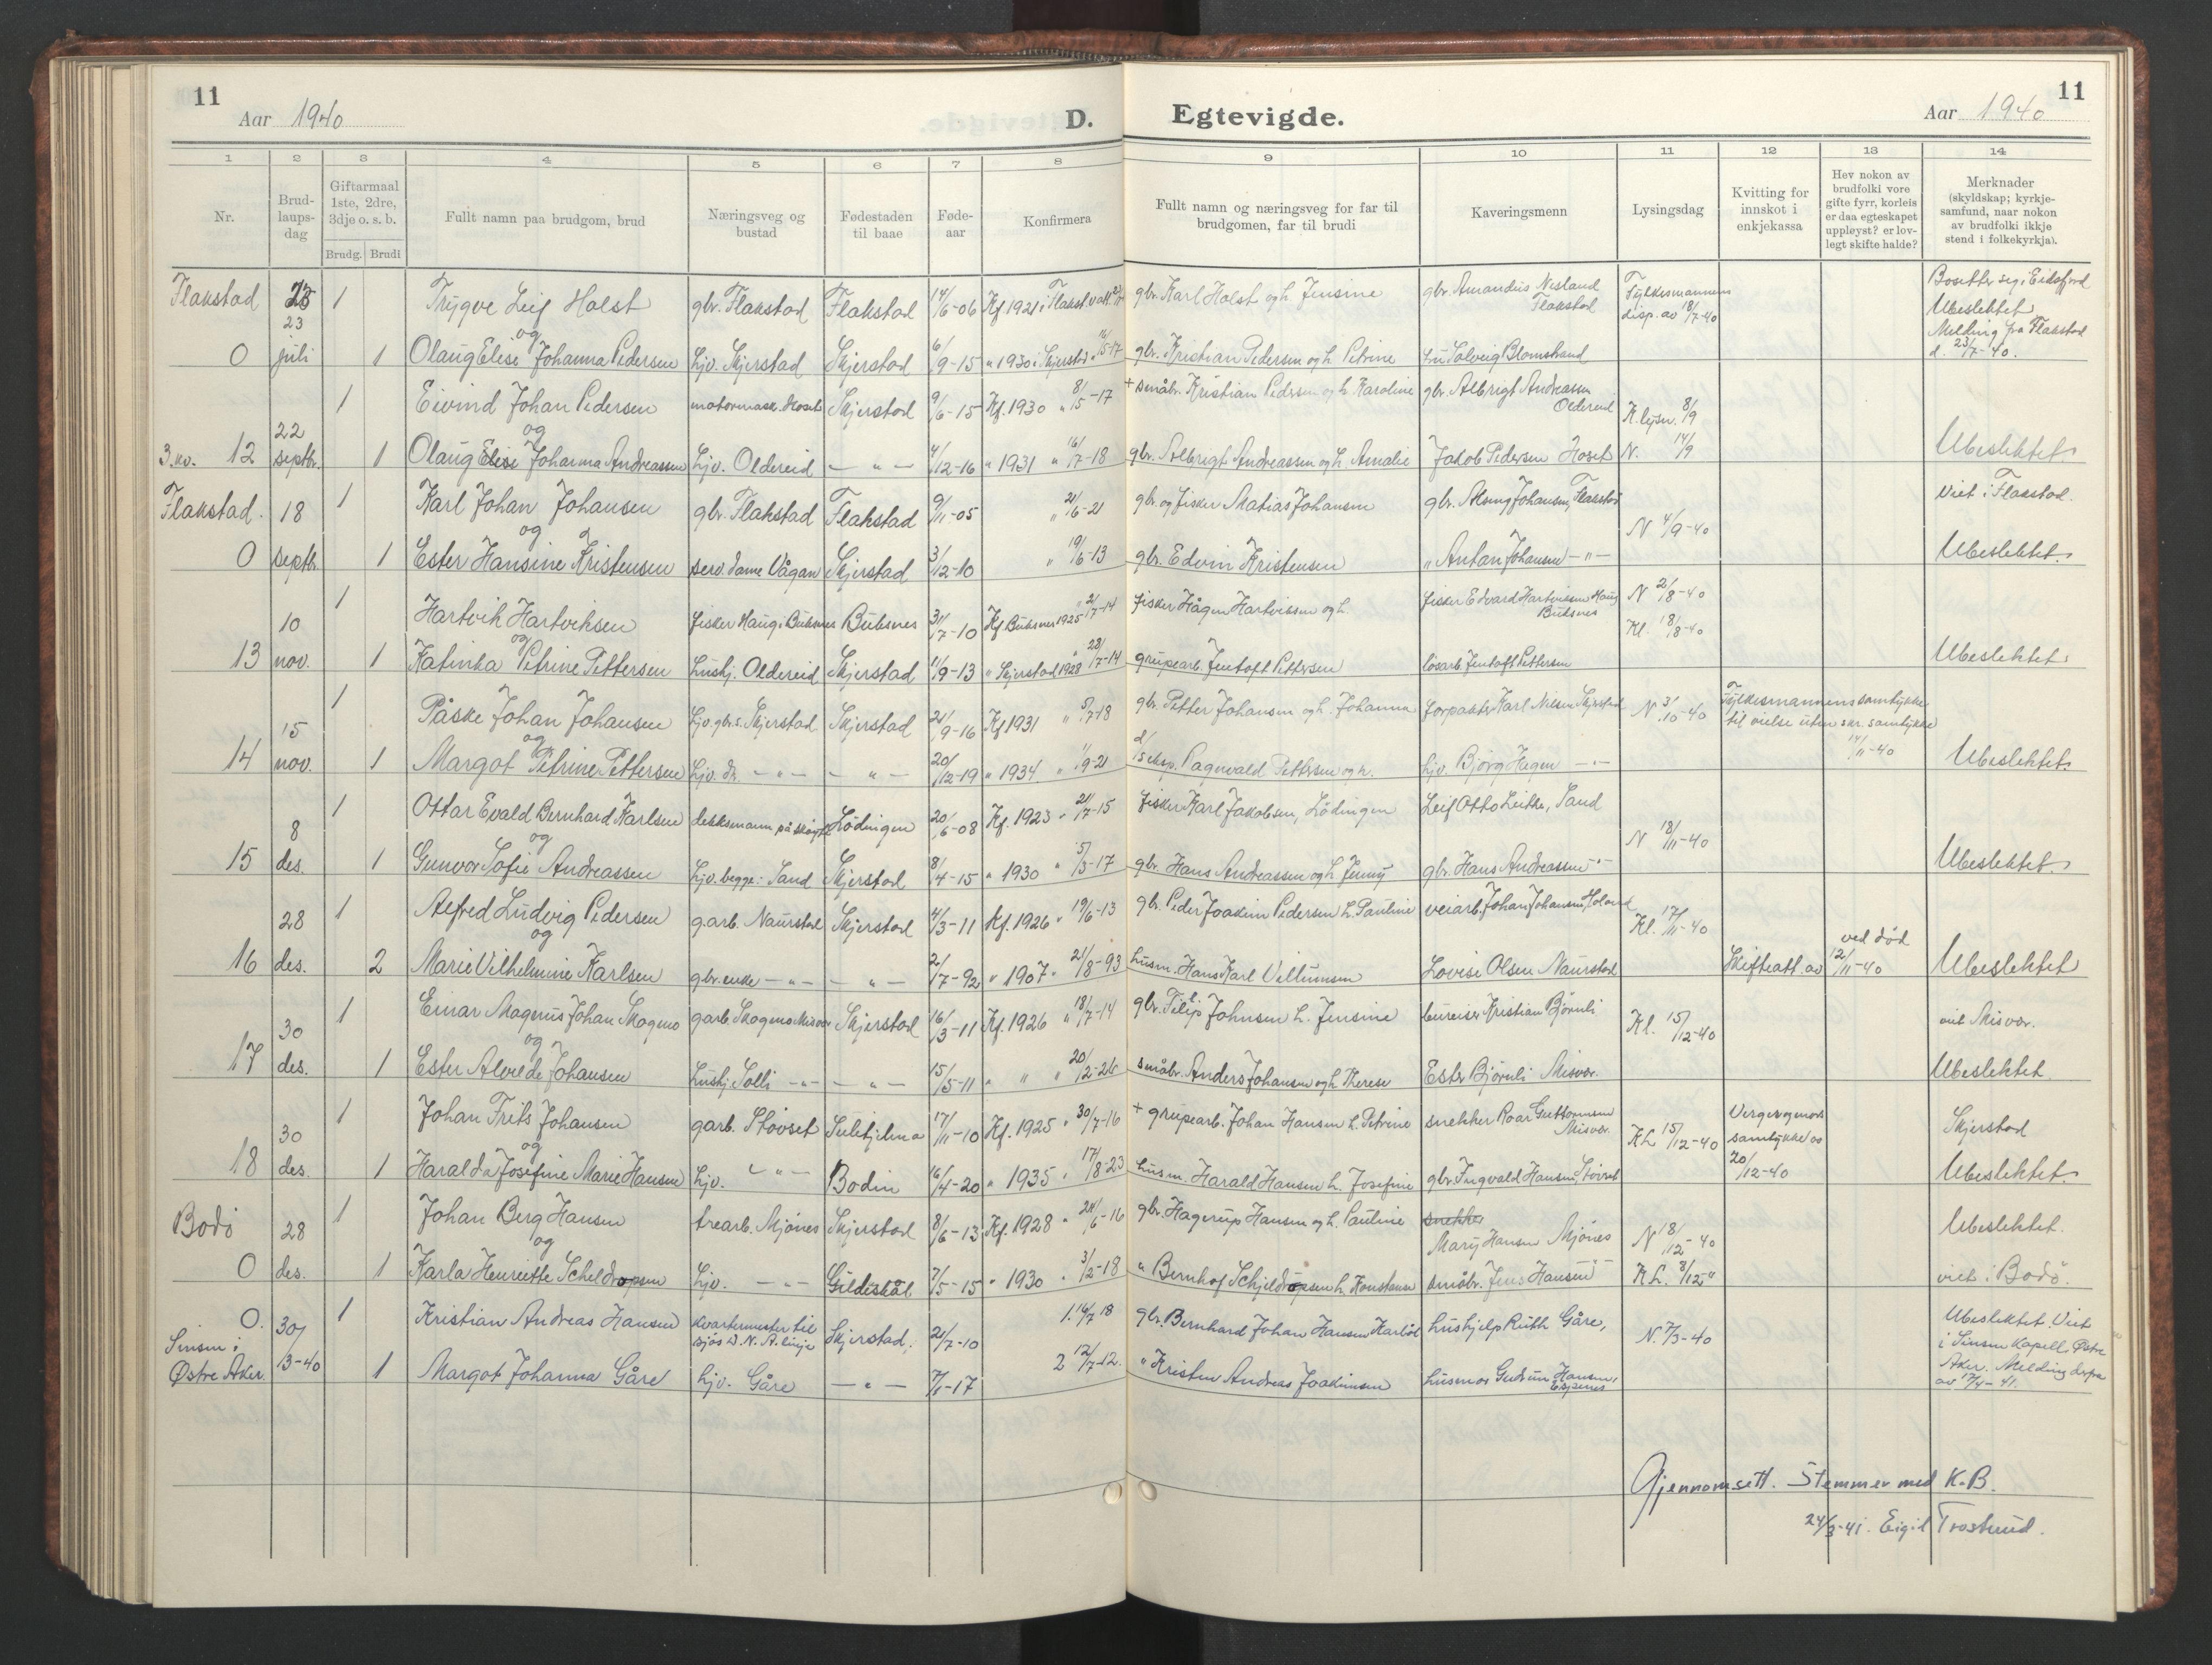 11
Aar 1940
D. Egtevigde.
Aar 1940
11
1 2 3 4 5 6 7 8 9 10 11 12 13 14
Nr.
Brud-
laups-
dag
Giftarmaal
1ste, 2dre,
3dje o. s. b.
Brudg. Brudi
Fullt namn paa brudgom, brud
Næringsveg og
bustad
Fødestaden
til baae
Føde-
aar
Konfirmera
Fullt namn og næringsveg for far til
brudgomen, far til brudi
Kaveringsmenn
Lysingsdag
Kvitting for
innskot i
enkjekassa
Hev nokon av
brudfolki vore
gifte fyrr, korleis
er daa egteskapet
uppløyst? er lov-
legt skifte halde?
Merknader
(skyldskap; kyrkje-
samfund, naar nokon
av brudfolki ikkje
stend i folkekyrkja).
Flakstad 23 1 Trygve Leif Holst gbr. Flakstad Flakstad 14/6-06 Kf. 1921 i Flakst. gbr. Karl Holst og h. Jensine gbr. Amandus Nesland Flakstad Fylkesmannens disp. av 18/7-40 Bosetter seg i Eidsfjord
Ubeslektet
Melding fra Flakstad
d. 23/7-40.
og
0 23 juli 1 Olaug Elise Johanna Pedersen hjv. Skjerstad Skjerstad 6/9-15 " 1930 i Skjerstad gbr. Kristian Pedersen og h. Petrine fru Solveig Blomstrand
1 Eivind Johan Pedersen motormask. Hoset Skjerstad 9/6-15 Kf. 1930 " 8/5-17 + småbr. Kristian Pedersen og h. Karoline gbr. Albrigt Andreassen Oldereid K. lysn. 8/9
og
3. kv. 12 22 septbr. 1 Olaug Elise Johanna Andreassen hjv. Oldereid — " — 4/12-16 " 1931 " 16/7-18 gbr. Albrigt Andreassen og h. Amalie Jakob Pedersen Hoset N. 14/9 Ubeslektet
Flakstad. 18 1 Karl Johan Johansen gbr. Flakstad Flakstad 9/11-05 " 2/6-21 gbr. og fisker Matias Johansen gbr. Johansen, Flakstad N 4/9-40 Viet i Flakstad.
og
0 septbr. 1 Ester Hansine Kristensen serv. dame Vågan Skjerstad 3/12-10 " 19/6-13 gbr. Edvin Kristensen " Antan Johansen — " — Ubeslektet.
10 1 Hartvik Hartviksen fisker Haug i Buksnes Buksnes 31/7-10 Kf. Buksnes 1925 " 2/7-14 fisker Hågen Hartviksen og h. fisker Edvard Hartviksen Haug Buksnes N 2/8-40
Kl. 18/8-40
og
13 nov. 1 Katinka Petrine Pettersen hushj. Oldereid Skjerstad 11/9-13 " Skjerstad 1928 " 23/7-14 grupearb. Jentoft Pettersen løsarb. Jentoft Pettersen Ubeslektet
15 1 Påske Johan Johansen hjv. gbr. s. Skjerstad Skjerstad 21/9-16 Kf 1931 " 5/7-18 gbr. Petter Johansen og h. Johanna forpakter Karl Nilsen Skjerstad N 3/10-40 Fylkesmannens samtykke
til vielse uten skr. samtykke
14/11-40
og
14 nov. 1 Margot Petrine Pettersen hjv. dr. — " — — " — 20/12-19 " 1934 " 1/9-21 Ragnvald Pettersen og h. hjv. Bjørg Hagen — " — Ubeslektet.
8 1 Ottar Evald Bernhard Karlsen dekksmann på skøyte Lødingen 20/6-08 Kf. 1923 " 21/7-15 fisker Karl Jakobsen, Lødingen Leif Otto Leithe, Sand N 18/11-40
og
15 des. 1 Gunvor Sofie Andreassen hjv. begge: Sand Skjerstad 8/4-15 " 1930 " 5/5-17 gbr. Hans Andreassen og h. Jenny gbr. Hans Andreassen — " — Ubeslektet.
28 1 Alfred Ludvig Pedersen g.arb. Naurstad Skjerstad 4/3-11 Kf. 1926 " 19/6-13 gbr. Peder Joakim Pedersen h. Pauline veiarb. Johan Johansen Holand Kl. 17/11-40
og
16 des. 2 Marie Vilhelmine Karlsen gbr. enke — " — — " — 2/7-92 " 1907 " 21/8-93 husm. Hans Karl Villumsen Lovise Olsen Naurstad Skifteatt. av 12/11-40 ved død Ubeslektet
30 1 Einar Magnus Johan Skogmo garb. Skogmo Misvær Skjerstad 16/3-11 Kf. 1926 " 18/7-14 gbr. Filip Johnsen h. Jensine bureiser Kristian Bjørnli Kl. 15/12-40 viet Misvær.
og
17 des. 1 Ester Alvilde Johansen hushj. Solli — " — — " — 15/5-11 " " " 20/2-26 småbr. Anders Johansen og h. Therese Ester Bjørnli Misvær. Ubeslektet
30 1 Johan Frits Johansen garb. Støvset Sulitjelma 17/11-10 Kf. 1925 " 30/7-16 + grupearb. Johan Hansen h. Petrine snekker Roar Guttormsen Misvær. Kl. 15/12-40 Verges og mors
samtykke av
20/12-40 Skjerstad
og
18 des. 1 Haralda Josefine Marie Hansen hjv. — " — Bodin 16/4-20 " 1935 " 17/8-23 husm. Harald Hansen h. Josefine gbr. Ingvald Hansen, Støvset Ubeslektet.
Bodø 28 1 Johan Berg Hansen trearb. Mjønes Skjerstad 8/6-13 Kf. 1928 " 24/6-16 gbr. Hagerup Hansen og h. Pauline snekker
Mary Hansen Mjønes N 18/12-40 Ubeslektet.
og
0 des. 1 Karla Henriette Scheldropsen hjv. — " — Gildeskål 7/5-15 " 1930 " 3/2-18 " Bernhof Schjeldropsen h. Konstanse småbr. Jens Hansen — " — Kl. 8/12 " viet i Bodø.
0. 30/3-40 1 Kristian Andreas Hansen kvartermester til sjøs D. N. A. linje Skjerstad, 21/7-10 1. 16/7 18 gbr. Bernhard Johan Hansen Karbøl hushjelp Ruth Gåre, N. 7/3-40 Ubeslektet. Viet
i Sinsen Kapell Østre
Aker. Melding derfra
av 17/4-41.
Sinsen i
Østre Aker. 1 Margot Johanna Gåre hjv. Gåre — " — 7/1-17 2 12/7-12. " Kristen Andreas Joakimsen husmor Gudrun Hansen, Espenes
Gjennomsett. Stemmer med K.B.
24/3-41. Eigil Trostrud.